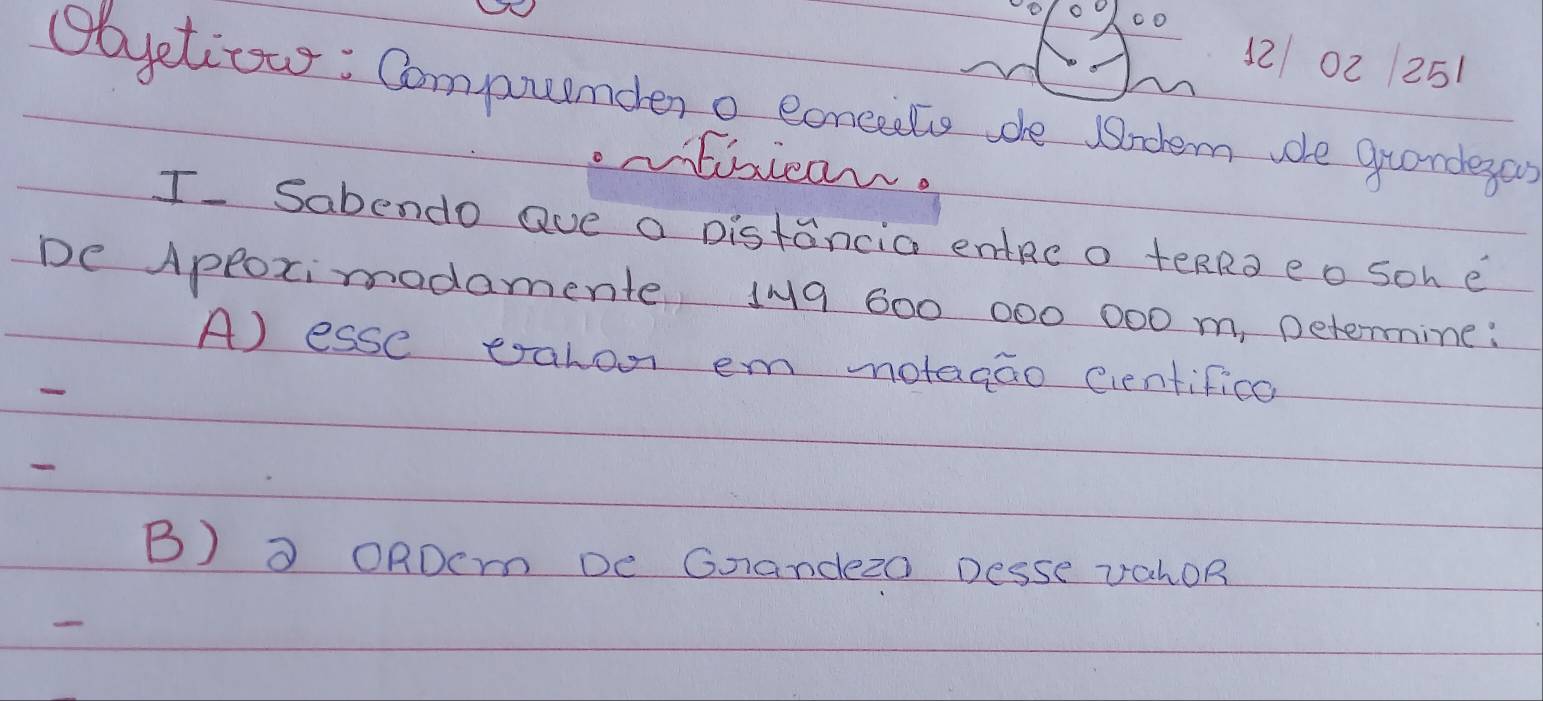 12/ 02 /25
Objetivos: Compreender o conceito de Ordem de grandezas
físicas.
I- Sabendo que a Distância entre a terra e o sol é
De Aproximadamente 149 600 000 000 m, Determine:
A) esse valor em notação cientifica
-
-
B) a ORDem De Grandeza Desse valOR
-
-